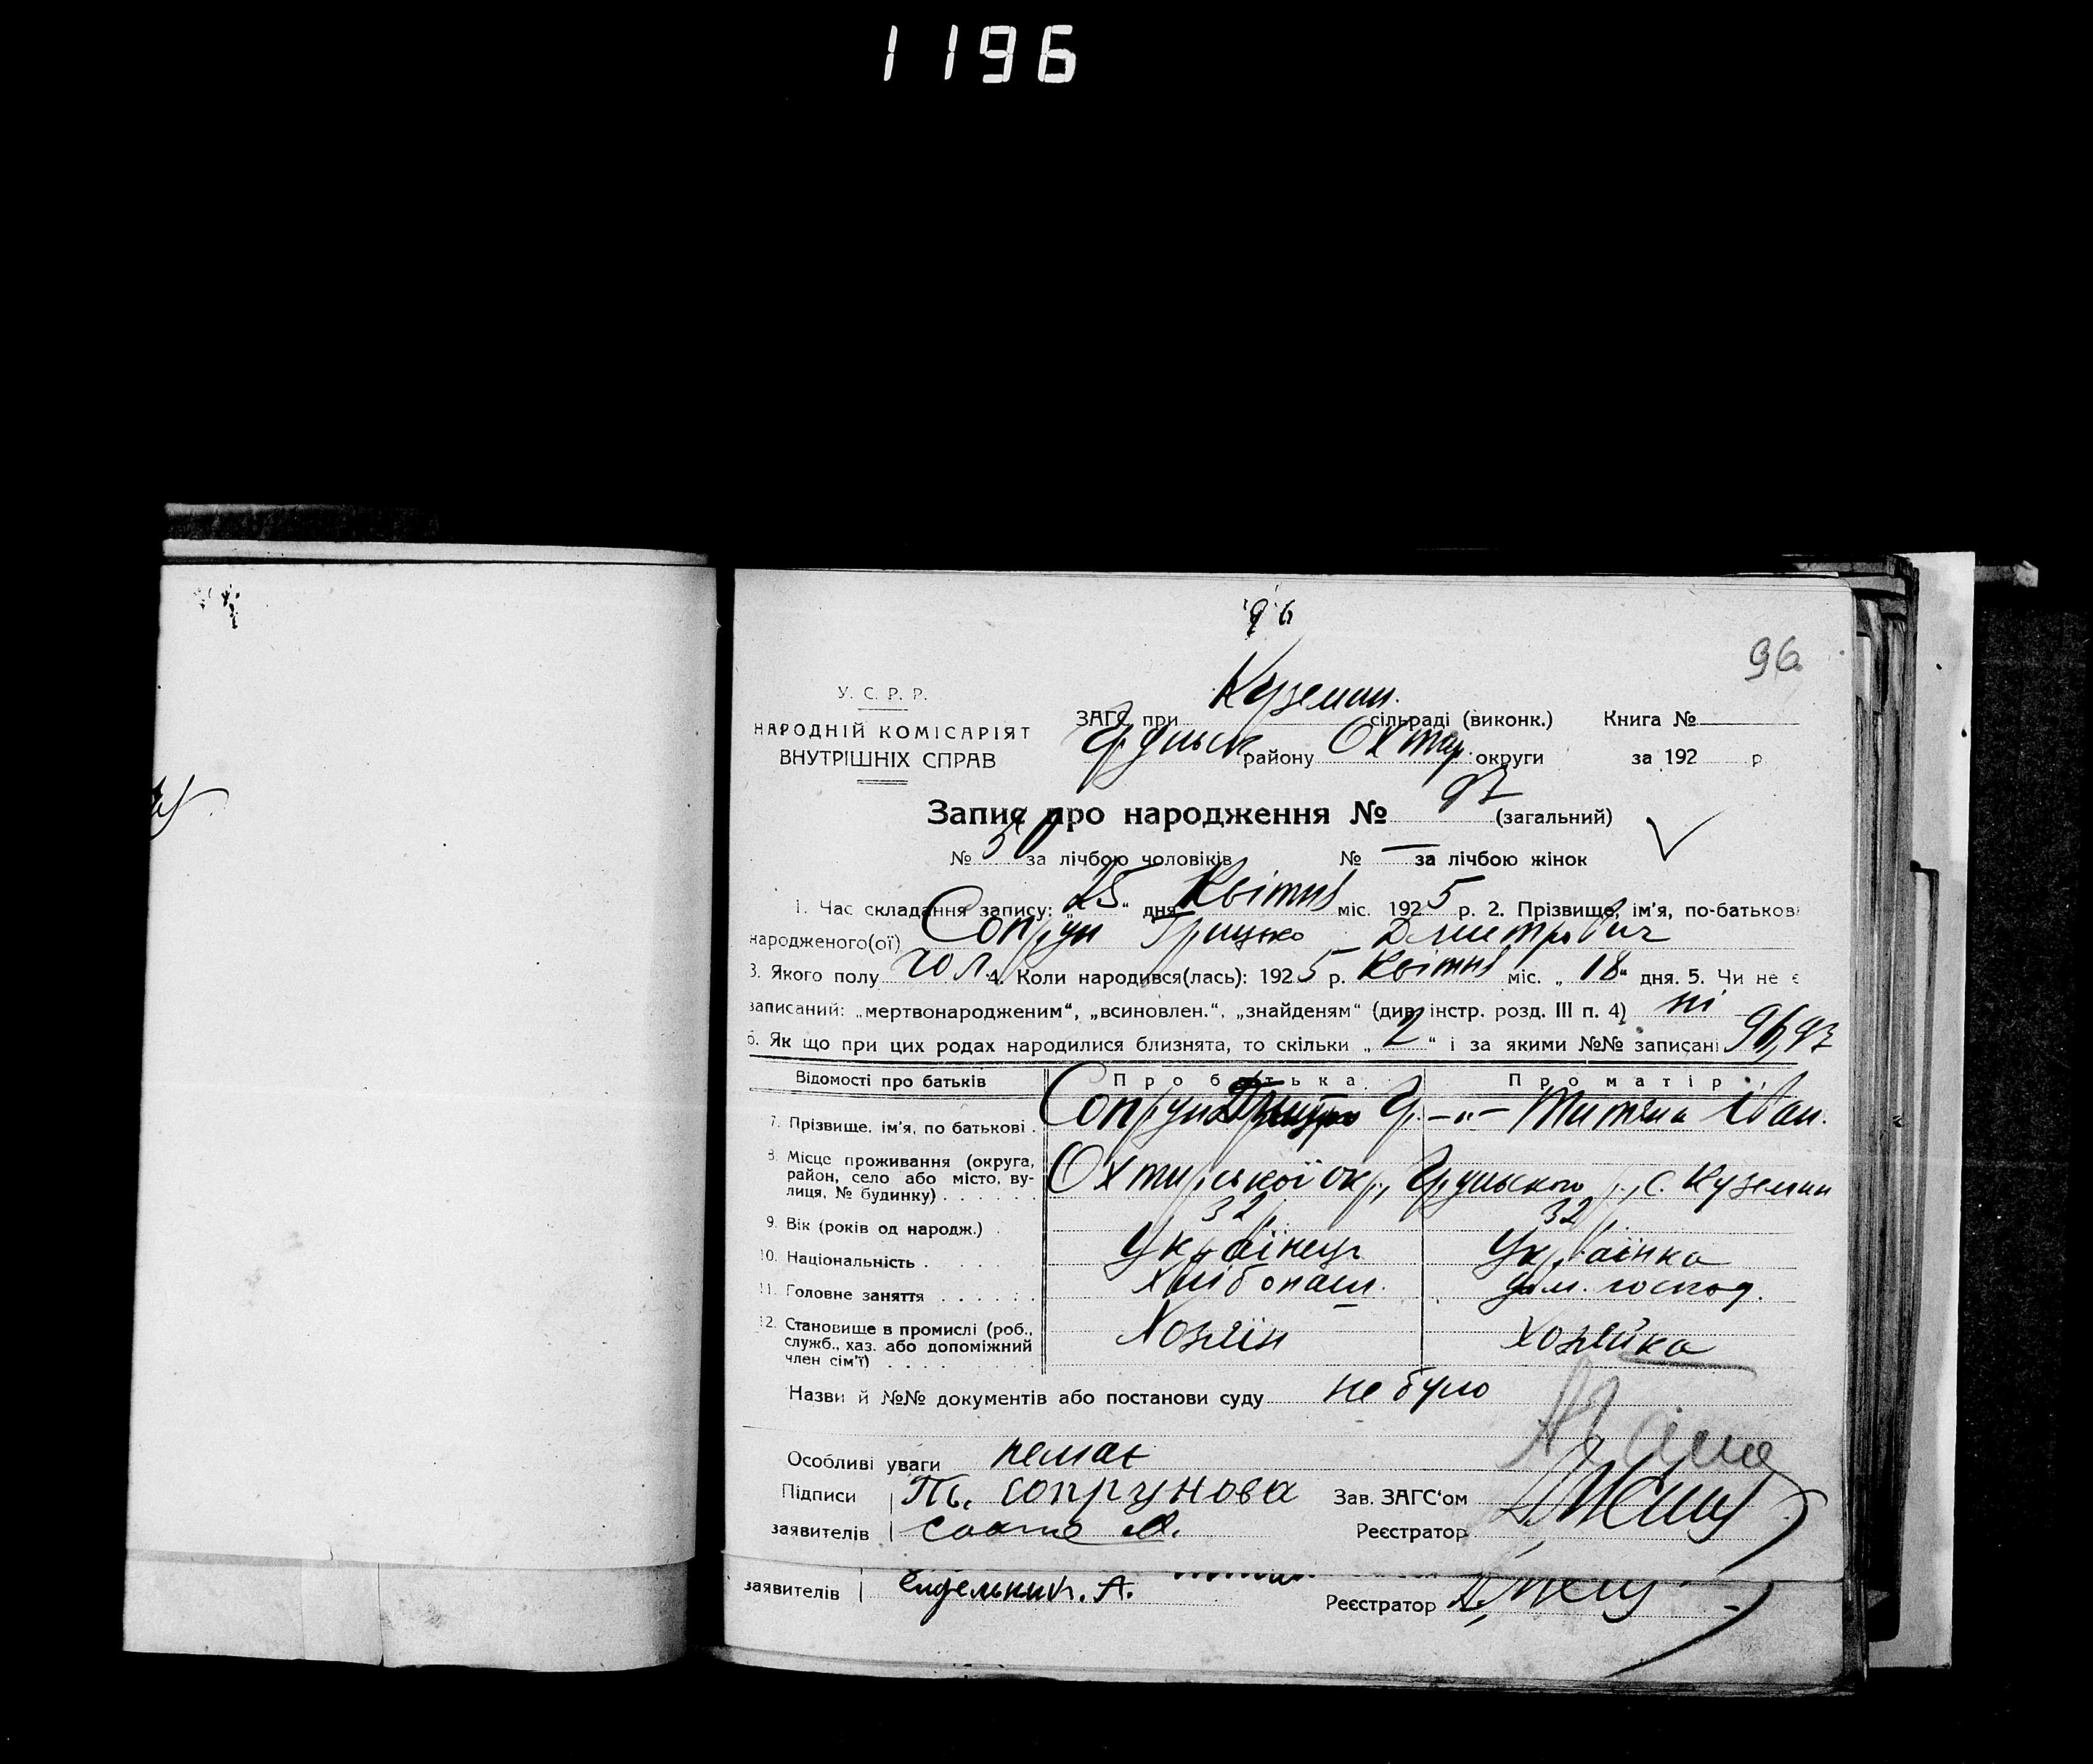 1196
96
96
У. С. Р. Р.
НАРОДНІЙ КОМІСАРІЯТ
ВНУТРІШНІХ СПРАВ
ЗАГС при Куземин. сільраді (виконк.) Книга №
Грунськ району Охтир. округи за 192 р
Запис про народження № 97 (загальний)
№ 50 за лічбою чоловіків № — за лічбою жінок
1. Час складання запису: „25“ дня Квітня міс. 1925 р. 2. Прізвище, ім'я, по-батькові
народженого(ої) Сопрун Грицько Дмитрович
3. Якого полу чол. 4. Коли народився(лась): 1925 р. Квітня міс. „18“ дня. 5. Чи не є
записаний: „мертвонародженим“, „всиновлен.“, „знайденям“ (див. інстр. розд. III п. 4) ні
6. Як що при цих родах народилися близнята, то скільки „2“ і за якими №№ записані 96, 97
Відомості про батьків Про батька Про матір
7. Прізвище, ім'я, по батькові. Сопрун Дмитро Г. —„— Титяна Іван.
8. Місце проживання (округа,
район, село або місто, ву-
лиця, № будинку) Охтирської окр., Грунського р., с. Куземин
9. Вік (років од народж.) 32 р. 32 р.
10. Національність Українець Українка
11. Головне заняття Хлібопаш. дом. господ.
12. Становище в промислі (роб.,
служб., хаз. або допоміжний
член сім'ї) Хозяїн Хозяйка
Назви й №№ документів або постанови суду не було
Особливі уваги немає
Підписи Ть. Сопрунова Зав. ЗАГС'ом
заявителів Реєстратор
заявителів А. Реєстратор